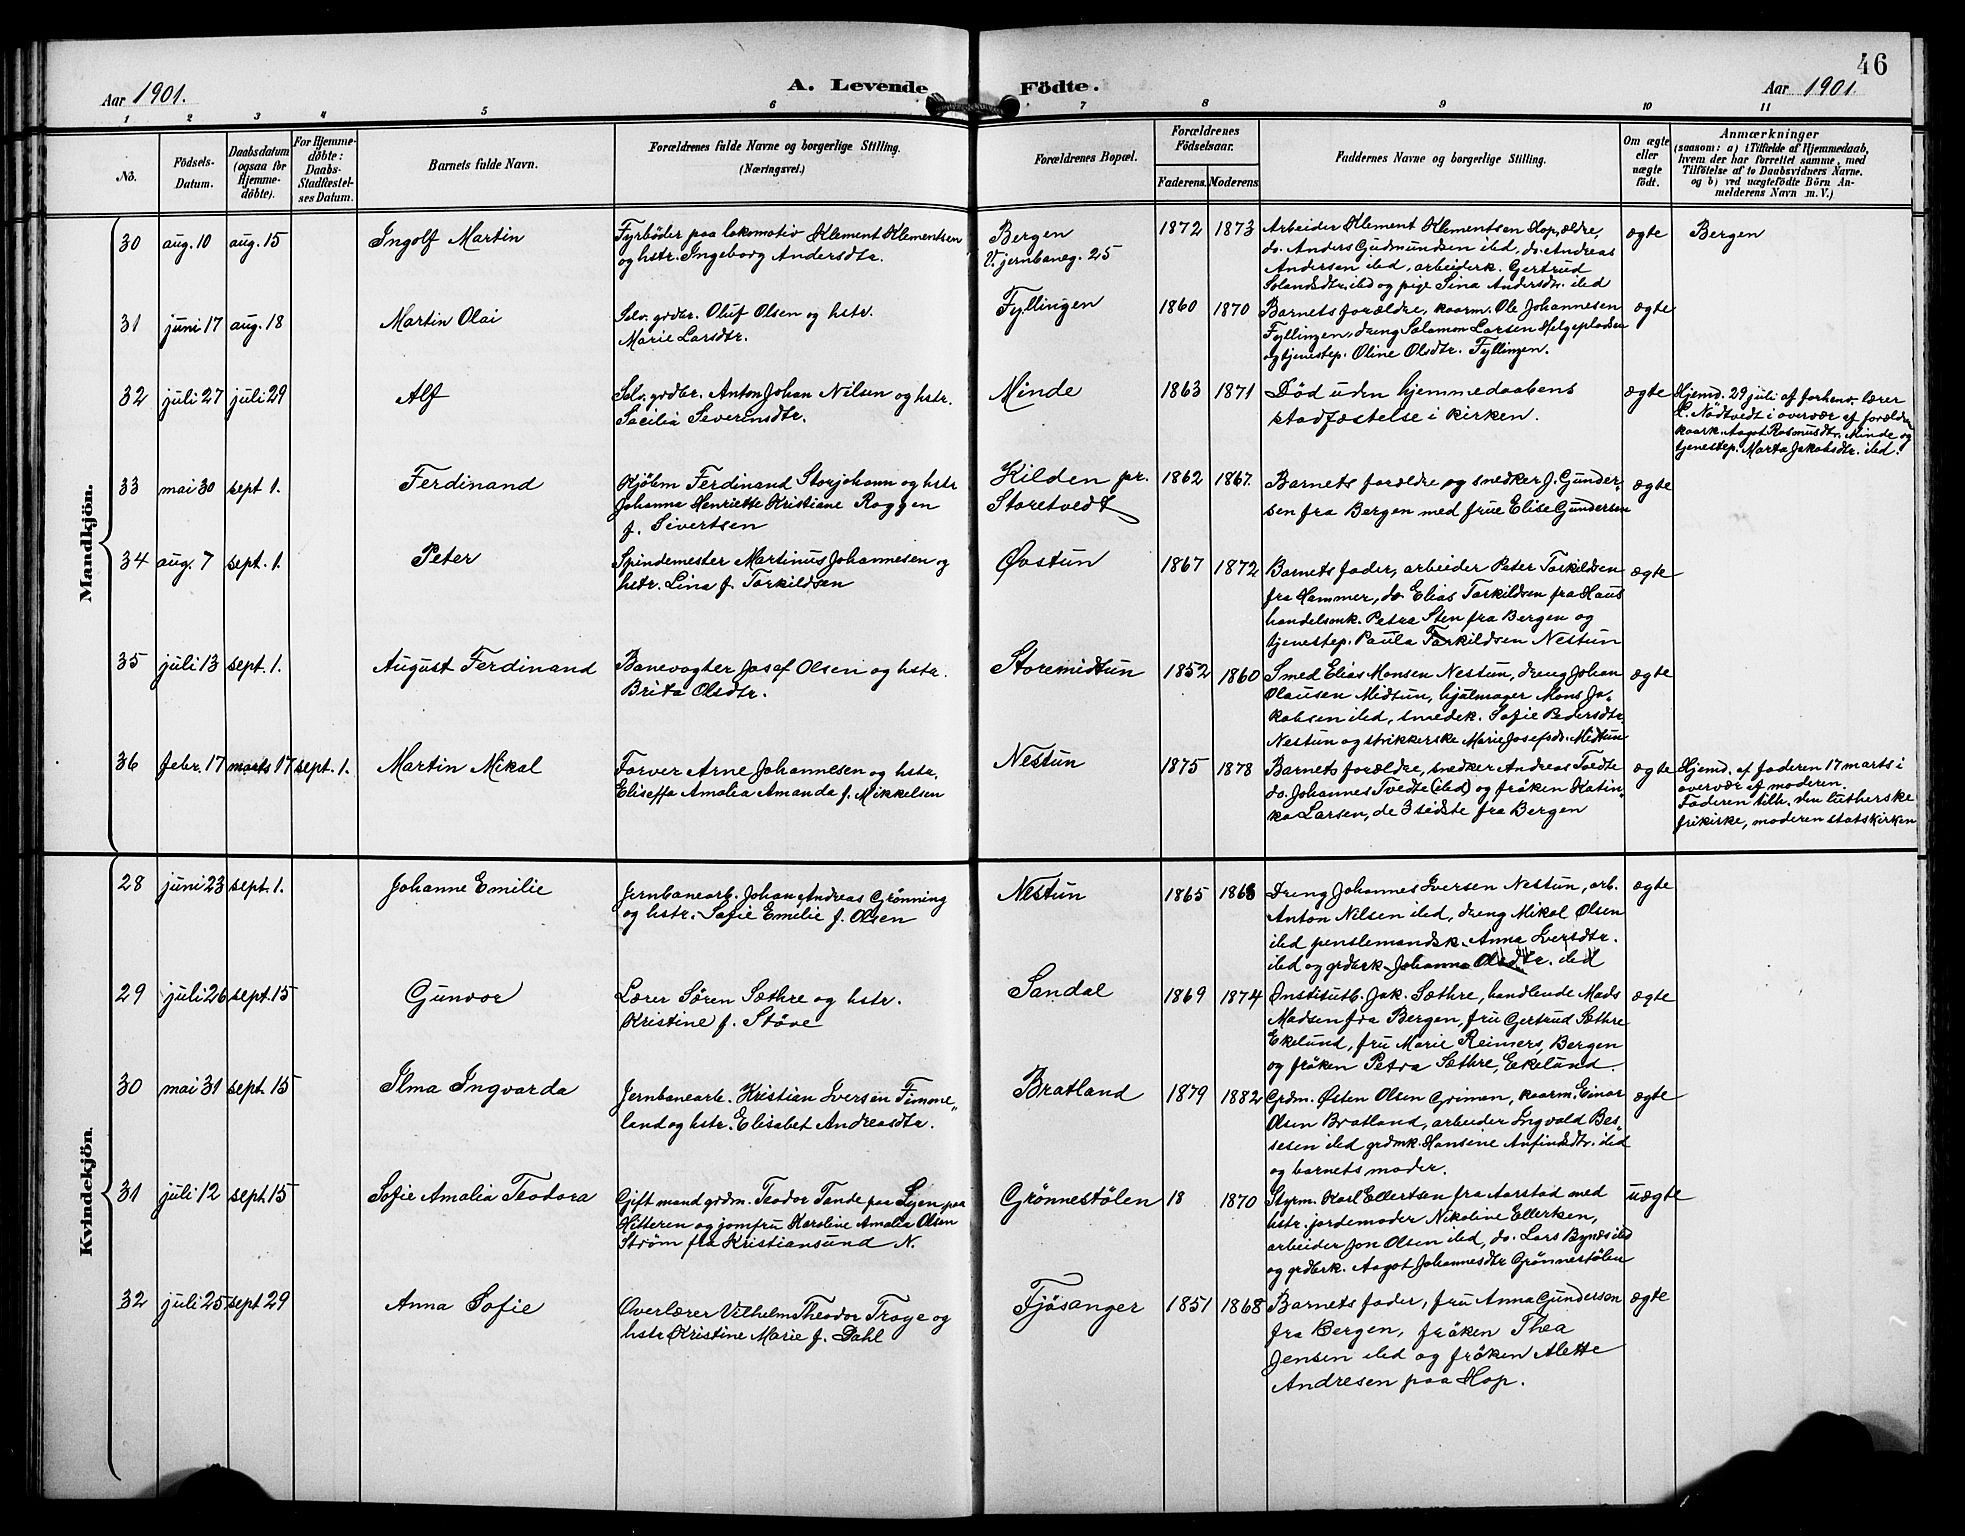 46
Aar 1901. A. Levende Födte. Aar 1901.
1 2 3 4 5 6 7 8 9 10 11
No.
Födsels-
Datum.
Daabsdatum
(ogsaa for
Hjemme-
döbte).
For Hjemme-
döbte:
Daabs-
Stadfæstel-
ses Datum.
Barnets fulde Navn.
Forældrenes fulde Navne og borgerlige Stilling.
(Næringsvei.)
Forældrenes Bopæl.
Forældrenes
Födselsaar.
Faderens. Moderens.
Faddernes Navne og borgerlige Stilling.
Om ægte
eller
uægte
födt.
Anmærkninger
(saasom: a) i Tilfælde af Hjemmedaab,
hvem der har forrettet samme, med
Tilföielse af to Daabsvidners Navne.
og b) ved uægtefödte Börn An-
melderens Navn m. V.)
Mandkjön.
30 aug. 10 aug. 15 Ingolf Martin
Fyrböder paa lokomotiv Klement Klementsen
og hstr. Ingeborg Andersdtr.
Bergen
V. jernbaneg. 25
1872 1873
Arbeider Klement Klementsen Hop, ældre,
do. Anders Gudmundsen ibd, do. Andreas
Andersen ibd, arbeiderk. Gertrud
ibd og pige Sina Andersdtr. ibd
ægte Bergen
31 juni 17 aug. 18 Martin Olai
Selv. grdbr. Oluf Olsen og hstr.
Marie Larsdtr.
Fyllingen
1860 1870
Barnets forældre, kaarm. Ole Johannesen
Fyllingen, dreng Salamon Larsen Helgepladsen
og tjenestep. Oline Olsdtr. Fyllingen.
ægte
32 juli 27 juli 29 Alf
Selv. grdbr. Anton Johan Nilsen og hstr.
Sæcilia Severinsdtr.
Minde
1863 1871
Död uden hjemmedaabens
stadfæstelse i kirken.
ægte
Hjemd. 29 juli af forhenv. lærer
L. Nödtvedt i overvær af forældre
kaark. Aagot Rasmusdtr. Minde og
tjenestep. Marta Jakobsdtr. ibd.
33 mai 30 sept. 1. Ferdinand
Kjöbm Ferdinand Storjohann og hstr
Johanna Henriette Kristiane Roggen
f. Sivertsen
Kilden pr.
Storetvedt
1862 1867.
Barnets forældre og snedker J. Gunder-
sen fra Bergen med frue Elise Gundersen
ægte
34 aug. 7 sept. 1. Peter
Spindemester Martinus Johannesen og
hstr. Lina f. Torkildsen
Øvstun
1867 1872
Barnets fader, arbeider Peter Torkildsen
fra Hammer, do Elias Torkildsen fra Haus
handelsmk. Petra Sten fra Bergen og
tjenestep. Paula Torkildsen Nestun
ægte
35 juli 13 sept. 1. August Ferdinand
Banevogter Josef Olsen og hstr.
Brita Olsdtr.
Storemidtun
1852 1860
Smed Elias Monsen Nestun, dreng Johan
Olausen Midtun, hjulmager Mons Ja-
kobsen ibd, smedek. Sofie Pedersdtr.
Nestun og strikkerske Marie Josefsd. Midtun
ægte
36 febr. 17 marts 17 sept. 1. Martin Mikal
Farver Arne Johannesen og hstr.
Eliseffa Amalia Amanda f. Mikkelsen
Nestun
1875 1878
Barnets forældre, snedker Andreas Tvedte
do. Johannes Tvedte (ibd) og fröken Katin-
ka Larsen, de 3 sidste fra Bergen
ægte
Hjemd. af faderen 17 marts i
overvær af moderen.
Faderen tilh. den lutherske
frikirke, moderen statskirken
Kvindekjön.
28 juni 23 sept. 1. Johanne Emilie
Jernbanearb. Johan Andreas Grönning
og hstr. Sofie Emilie f. Olsen
Nestun
1865 1868
Dreng Johannes Iversen Nestun, arb.
Anton Nilsen ibd, dreng Mikal Olsen
ibd penslemandsk. Anna Iversdtr.
ibd og grdbrk. Johanna Olsdtr. ibd
ægte
29 juli 26 sept. 15 Gunvor
Lærer Sören Sæthre og hstr.
Kristine f. Støve
Sandal
1869 1874
Institutb. Jak. Sæthre, handlende Mads
Madsen fra Bergen, fru Gertrud Sæthre
Ekelund, fru Marie Reimers, Bergen
og fröken Petra Sæthre, Ekelund.
ægte
30 mai 31 sept. 15 Ilma Ingvarda
Jernbanearb. Kristian Iversen Fimme-
land og hstr. Elisabet Andreasdtr.
Bratland
1879 1882
Grdm. Østen Olsen Grimen, kaarm. Einar
Olsen Bratland, arbeider Ingvald Bes-
sesen ibd grdmk. Hansine Anfindsdtr. ibd
og barnets moder.
ægte
31 juli 12 sept. 15 Sofie Amalia Teodora
Gift mand grdm. Teodor Tande paa Lyen, paa
Hitteren og jomfru Karoline Amalia Olsen
Ström fra Kristiansund N.
Grönnestölen
18 1870
Styrm. Karl Ellertsen fra Aarstad med
hstr. jordemoder Nikoline Ellertsen,
arbeider Jon Olsen ibd, do. Lars Bynæs ibd
og grdbrk. Aagot Johannesdtr Grönnestölen
uægte
32 juli 25 sept 29 Anna Sofie
Overlærer Vilhelm Theodor Troye og
hstr Kristine Marie f. Dahl
Fjösanger
1851 1868
Barnets fader, fru Anna Gundersen
fra Bergen, fröken Thea
Jensen ibd og fröken Alette
Andresen paa Hop.
ægte